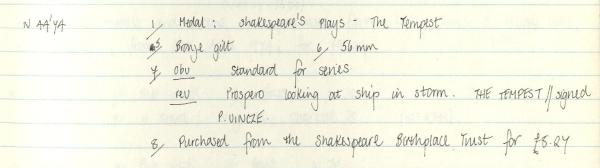 N 44'74 1/ Medal: Shakespeare's Plays - The Tempest
3/ Bronze gilt 6/ 56mm
7/ obv standard for series
rev Prospero looking at ship in storm. THE TEMPEST // signed
P. VINCZE.
8/ Purchased from the Shakespeare Birthplace Trust for £8.24